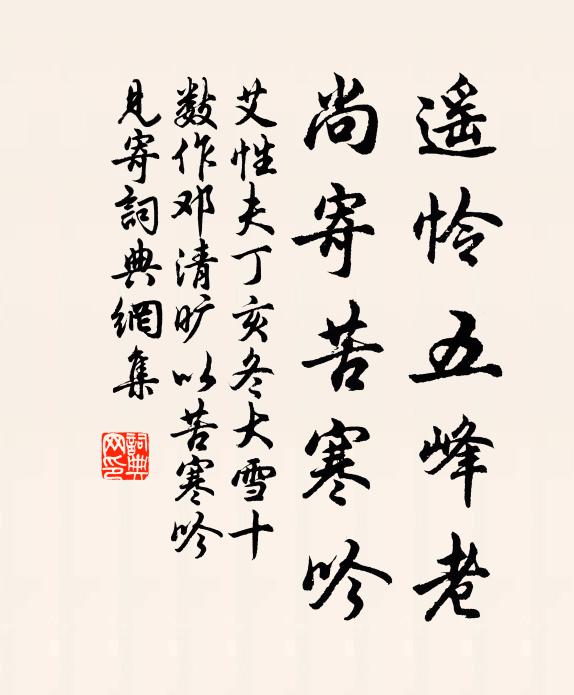 遥怜五峰老
尚寄苦寒吟
艾性夫丁亥冬大雪十
数作邓清旷以苦寒吟
见寄詞典網集
詞典
网印